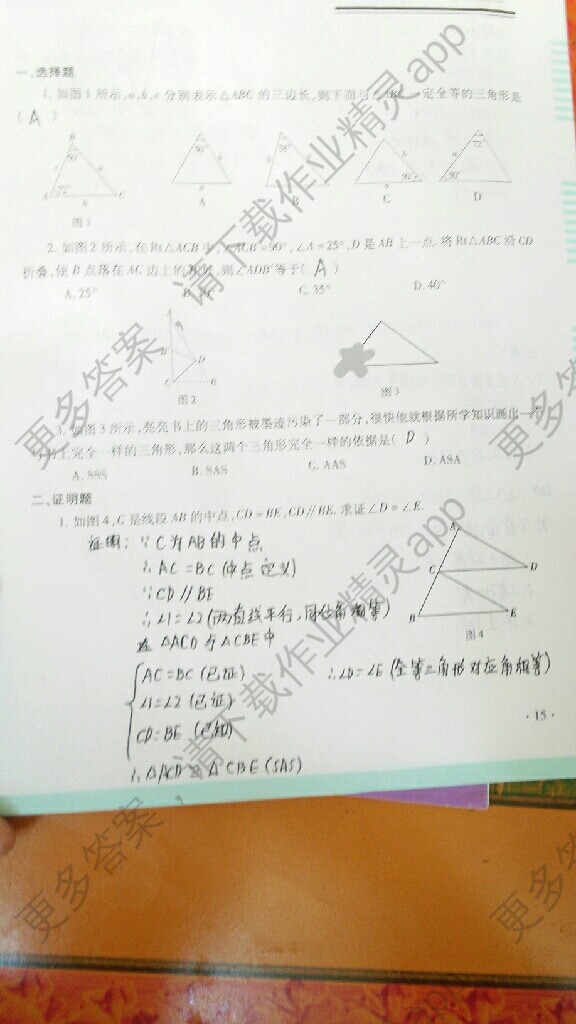 一、选择题
1. 如图1所示,a,b,c分别表示△ABC的三边长,则下面与△ABC一定全等的三角形是
( A )
B
50°
72°
A
b
C
图1
50°
a
A
B
C
D
2. 如图2所示,在Rt△ACB中,∠ACB=90°,∠A=25°,D是AB上一点.将Rt△ABC沿CD
折叠,使B点落在AC边上的 处,则∠ADB′等于( A )
A.25°
C.35°
D.40°
A
D
C
B
图2
图3
3. 如图3所示,亮亮书上的三角形被墨迹污染了一部分,很快他就根据所学知识画出一个
上完全一样的三角形,那么这两个三角形完全一样的依据是( D )
A. SSS
B. SAS
C. AAS
D. ASA
二、证明题
1. 如图4,C是线段AB的中点,CD=BE,CD∥BE.求证∠D=∠E.
证明: ∵C为AB的中点
∴AC=BC(中点定义)
∵CD∥BE
∴∠1=∠2(两直线平行,同位角相等)
在△ACD与△CBE中
AC=BC(已证)
∠1=∠2(已证)
CD=BE(已知)
∴△ACD≌△CBE(SAS)
∴∠D=∠E(全等三角形对应角相等)
A
C
D
B
E
图4
·15·
更多答案,请下载作业精灵app
更多答案,请下载作业精灵app